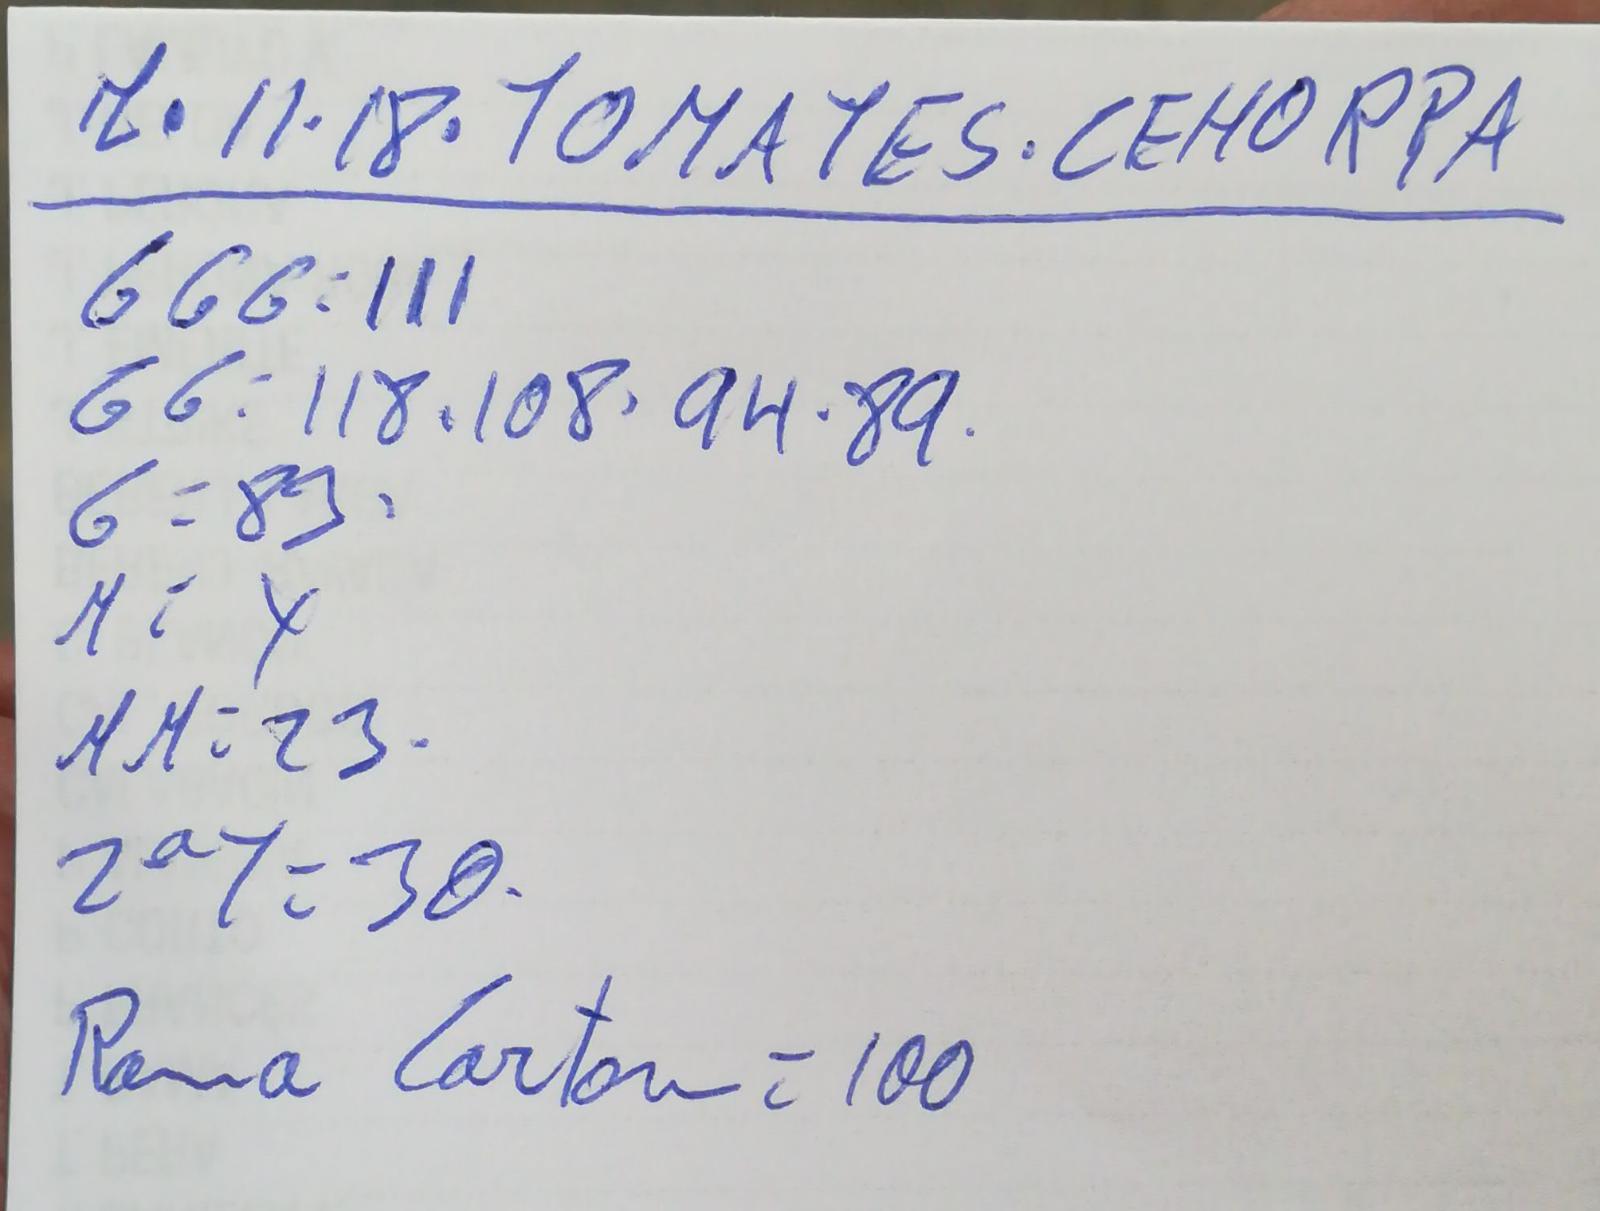 M. 11. 18. TOMATES. CEHORPA
GGG = 111
GG = 118. 108. 94. 89.
G = 83.
M = Y
MM = 23.
2ª Y = 30.
Rama Carton = 100